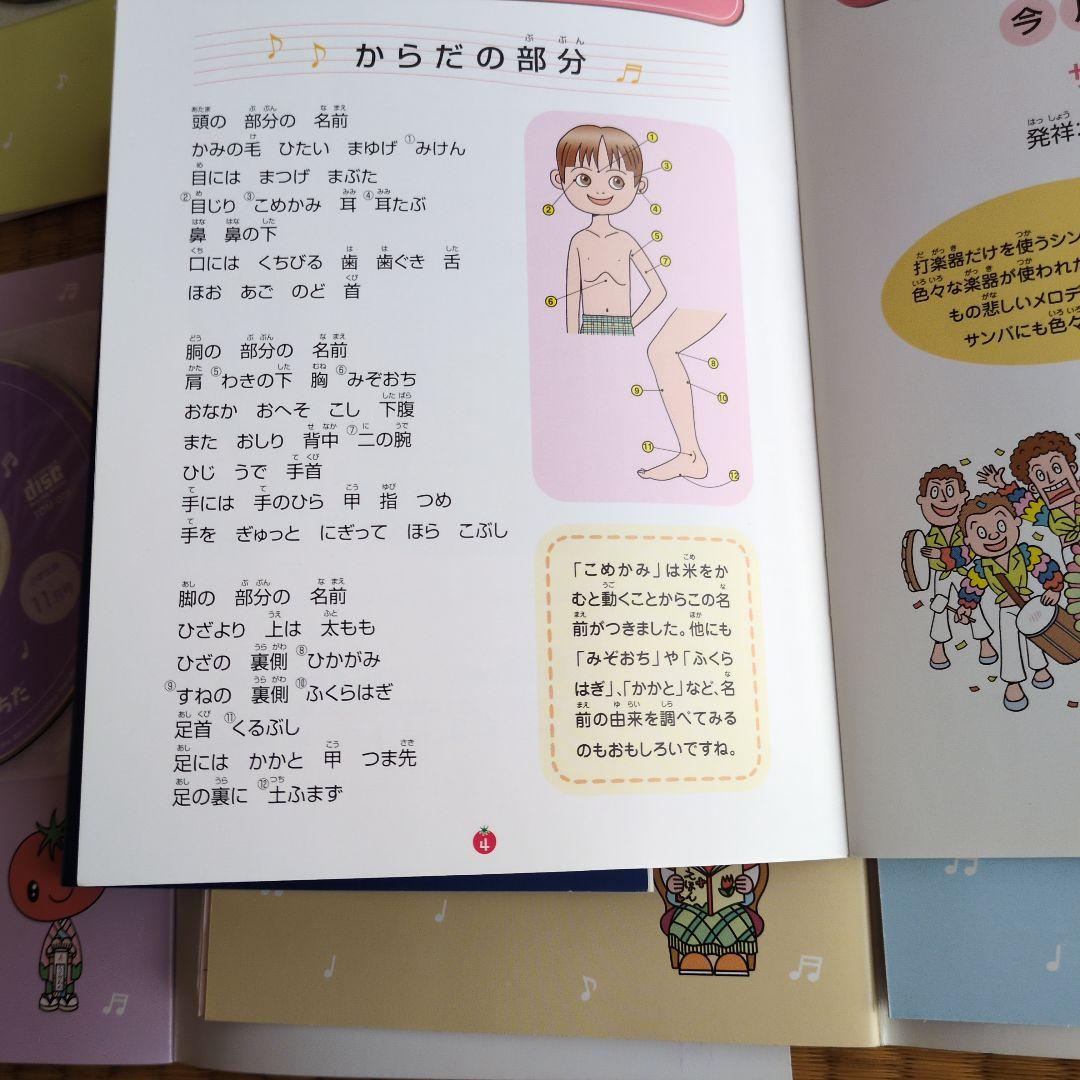 からだの部分
頭の 部分の 名前
かみの毛 ひたい まゆげ ①みけん
目には まつげ まぶた
②目じり ③こめかみ 耳 ④耳たぶ
鼻 鼻の下
口には くちびる 歯 歯ぐき 舌
ほお あご のど 首
胴の 部分の 名前
肩 ⑤わきの下 胸 ⑥みぞおち
おなか おへそ こし 下腹
また おしり 背中 ⑦二の腕
ひじ うで 手首
手には 手のひら 甲 指 つめ
手を ぎゅっと にぎって ほら こぶし
脚の 部分の 名前
ひざより 上は 太もも
ひざの 裏側 ⑧ひかがみ
⑨すねの 裏側 ⑩ふくらはぎ
足首 ⑪くるぶし
足には かかと 甲 つま先
足の裏に ⑫土ふまず
1
3
2
4
5
7
6
8
9
10
11
12
「こめかみ」は米をか
むと動くことからこの名
前がつきました。他にも
「みぞおち」や「ふくら
はぎ」、「かかと」など、名
前の由来を調べてみる
のもおもしろいですね。
4
今
発祥
打楽器だけを使うシン
色々な楽器が使われた
もの悲しいメロデ
サンバにも色々
disc
11月号
えほん